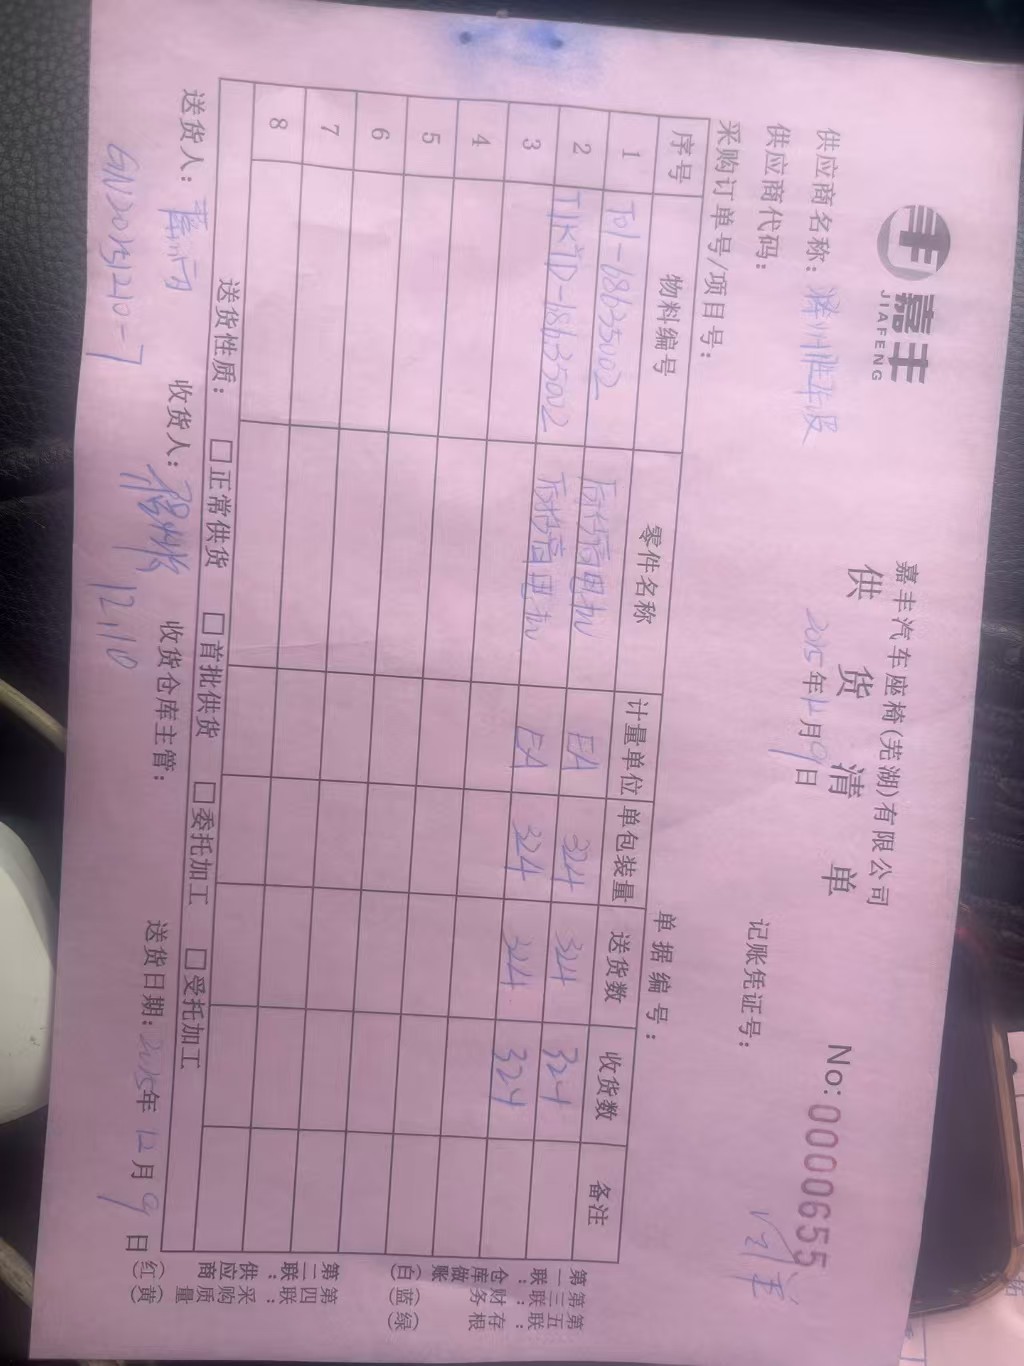 嘉丰
JIAFENG
嘉丰汽车座椅(芜湖)有限公司
供货清单
No: 0000655
供应商名称：
2025年12月9日
供应商代码：
记账凭证号：
采购订单号/项目号：
单据编号：
序号 物料编号 零件名称 计量单位 单包装量 送货数 收货数 备注
1 T01-18635002 EA 324 324 324
2 T1KMD-18635002 EA 324 324 324
3
4
5
6
7
8
送货性质： □正常供货 □首批供货 □委托加工 □受托加工
送货人： 收货人： 收货仓库主管： 送货日期：2025年12月9日
GN20251210-7
12.10
第一联：仓库做账(白)
第二联：供应商(红)
第三联：财务(蓝)
第四联：采购质量(黄)
第五联：存根(绿)